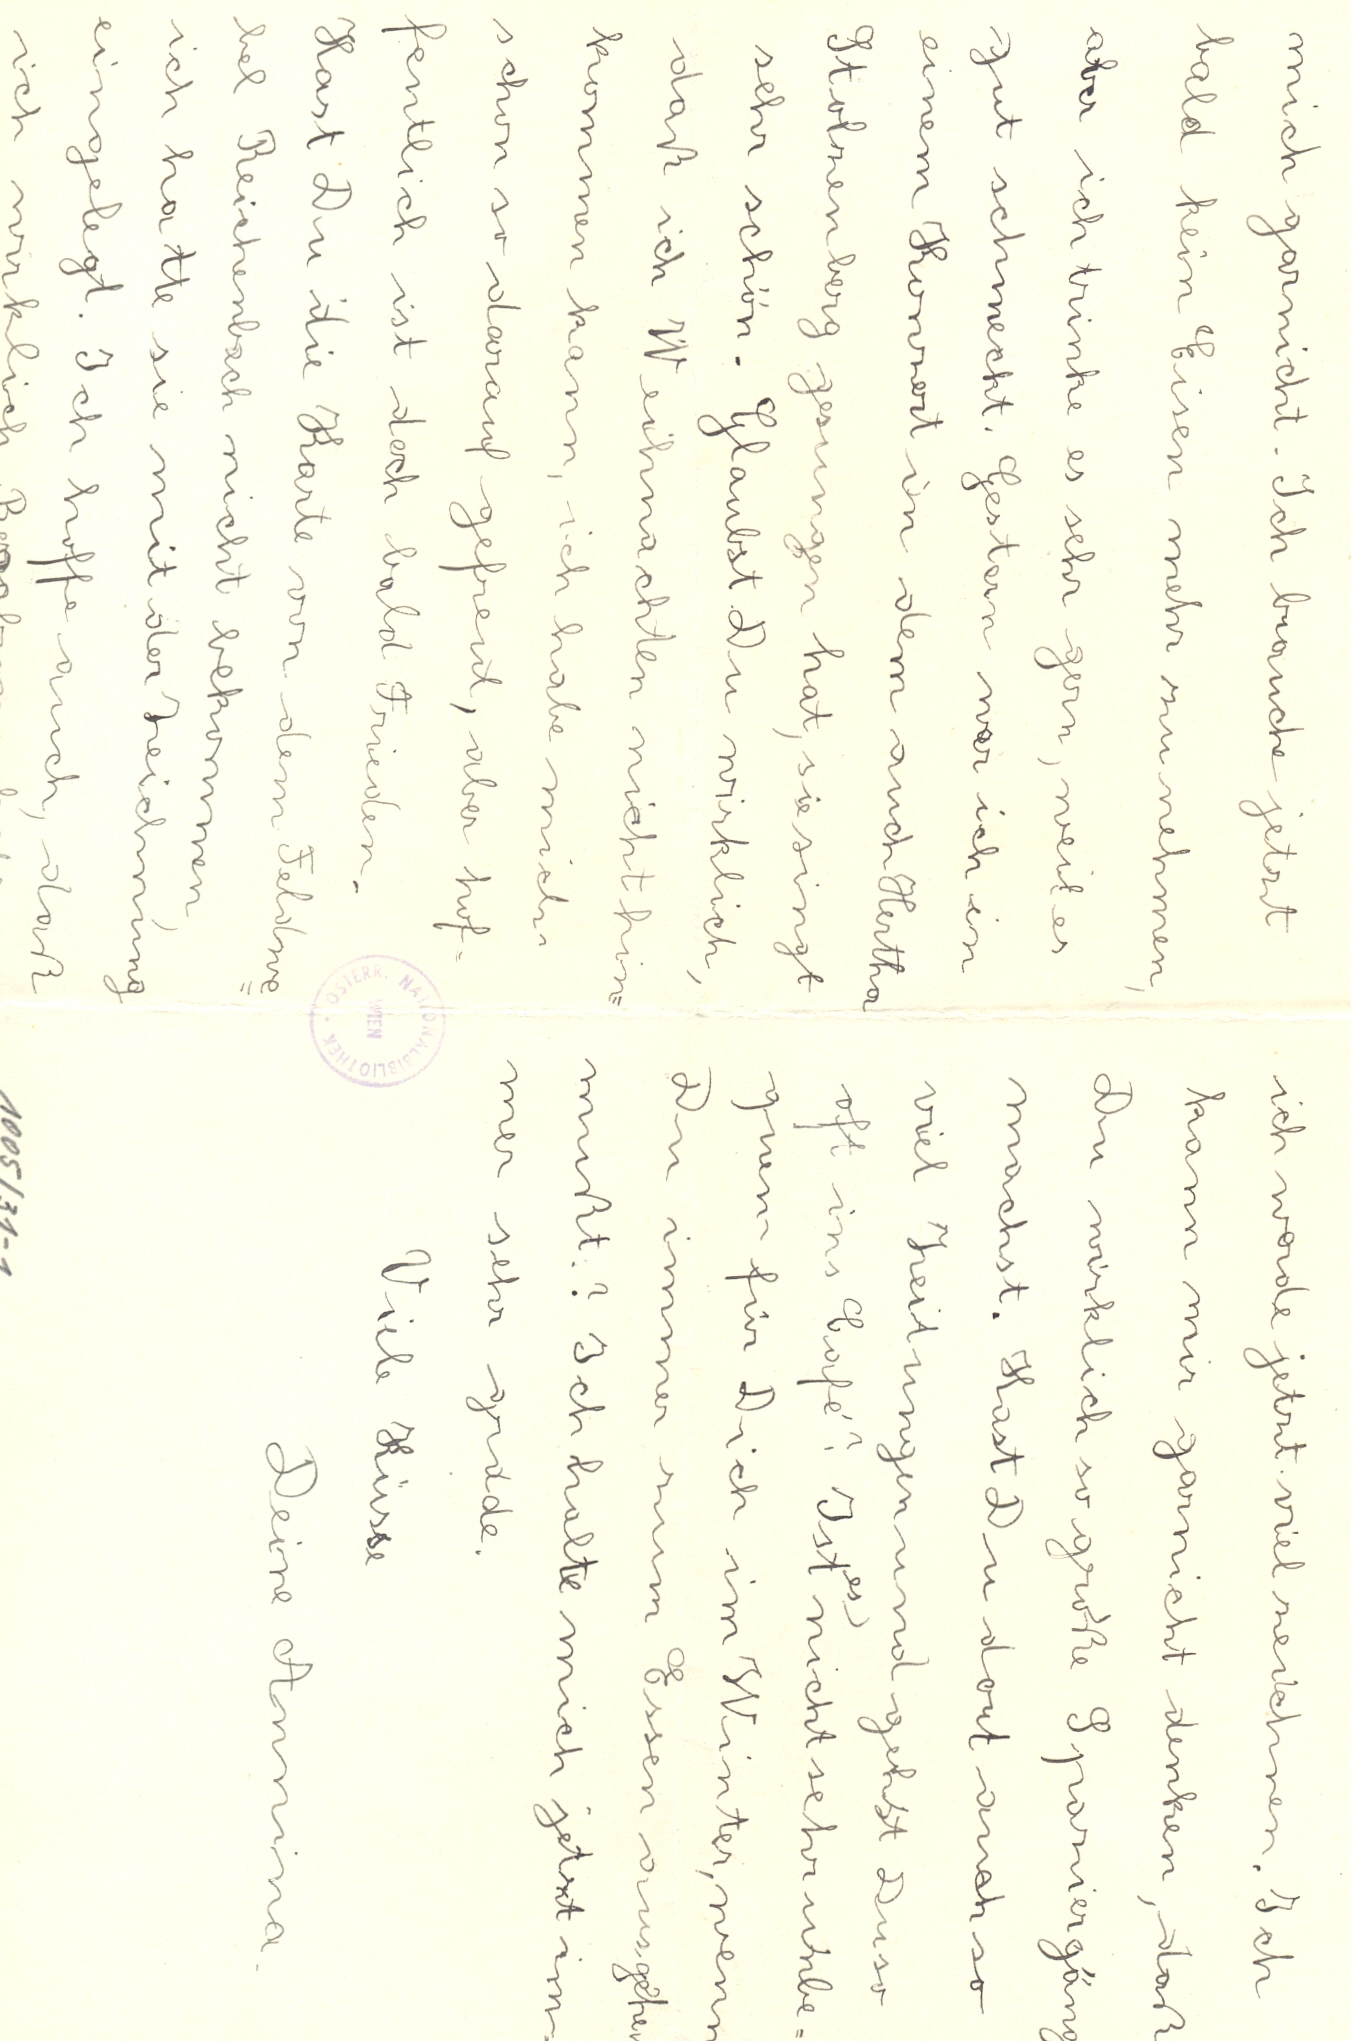 mich garnicht. Ich brauche jetzt
bald kein Eisen mehr zu nehmen,
aber ich trinke es sehr gern, weil es
gut schmeckt. Gestern war ich in
einem Konzert in dem auch Hertha
Stolzenberg gesungen hat, sie singt
sehr schön. Glaubst Du wirklich,
daß ich Weihnachten nicht hin=
kommen kann, ich habe mich
schon so darauf gefreut, aber hof=
fentlich ist doch bald Frieden.
Hast Du die Karte von dem Feldwe=
bel Reichenbach nicht bekommen,
ich hatte sie mit der Zeichnung
eingelegt. Ich hoffe auch, daß
ich wirklich
ich werde jetzt viel zeichnen. Ich
kann mir garnicht denken, daß
Du wirklich so große Spaziergäng
machst. Hast Du dort auch so
viel Zeitungen und gehst Du so
oft ins Café? Ist es nicht sehr unbe=
quem für Dich im Winter, wenn
Du immer zum Essen ausgehen
mußt? Ich halte mich jetzt im=
mer sehr grade.
Viele Küsse
Deine Annina.
ÖSTERR. NATIONALBIBLIOTHEK
WIEN
1005/31-1